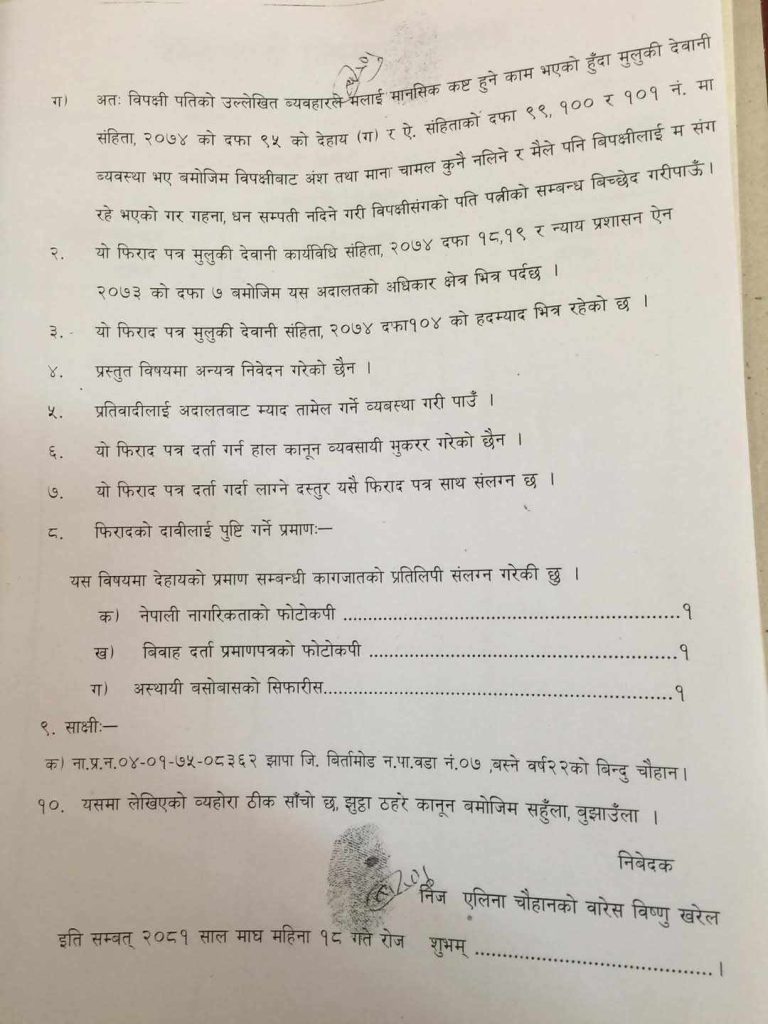 ग) अतः विपक्षी पतिको उल्लेखित व्यवहारले मलाई मानसिक कष्ट हुने काम भएको हुँदा मुलुकी देवानी
संहिता, २०७४ को दफा ९५ को देहाय (ग) र ऐ. संहिताको दफा ९९, १०० र १०१ नं. मा
ब्यवस्था भए बमोजिम विपक्षीबाट अंश तथा माना चामल कुनै नलिने र मैले पनि बिपक्षीलाई म संग
रहे भएको गर गहना, धन सम्पती नदिने गरी विपक्षीसंगको पति पत्नीको सम्बन्ध बिच्छेद गरीपाऊँ।
२. यो फिराद पत्र मुलुकी देवानी कार्यविधि संहिता, २०७४ दफा १८,१९ र न्याय प्रशासन ऐन
२०७३ को दफा ७ बमोजिम यस अदालतको अधिकार क्षेत्र भित्र पर्दछ ।
३. यो फिराद पत्र मुलुकी देवानी संहिता, २०७४ दफा१०४ को हदम्याद भित्र रहेको छ ।
४. प्रस्तुत विषयमा अन्यत्र निवेदन गरेको छैन ।
५. प्रतिवादीलाई अदालतबाट म्याद तामेल गर्ने व्यबस्था गरी पाउँ ।
६. यो फिराद पत्र दर्ता गर्न हाल कानून व्यवसायी मुकरर गरेको छैन ।
७. यो फिराद पत्र दर्ता गर्दा लाग्ने दस्तुर यसै फिराद पत्र साथ संलग्न छ ।
८. फिरादको दावीलाई पुष्टि गर्ने प्रमाणः—
यस विषयमा देहायको प्रमाण सम्बन्धी कागजातको प्रतिलिपी संलग्न गरेकी छु ।
क) नेपाली नागरिकताको फोटोकपी ..........................................................१
ख) बिवाह दर्ता प्रमाणपत्रको फोटोकपी .....................................................१
ग) अस्थायी बसोबासको सिफारीस............................................................१
९. साक्षीः—
क) ना.प्र.न.०४-०१-७५-०८३६२ झापा जि. बिर्तामोड न.पा.वडा नं.०७ ,बस्ने वर्ष२२को बिन्दु चौहान।
१०. यसमा लेखिएको व्यहोरा ठीक साँचो छ, झुठ्ठा ठहरे कानून बमोजिम सहुँला, बुझाउँला ।
निबेदक
निज एलिना चौहानको वारेस विष्णु खरेल
इति सम्बत् २०८१ साल माघ महिना १८ गते रोज शुभम् ........................................।